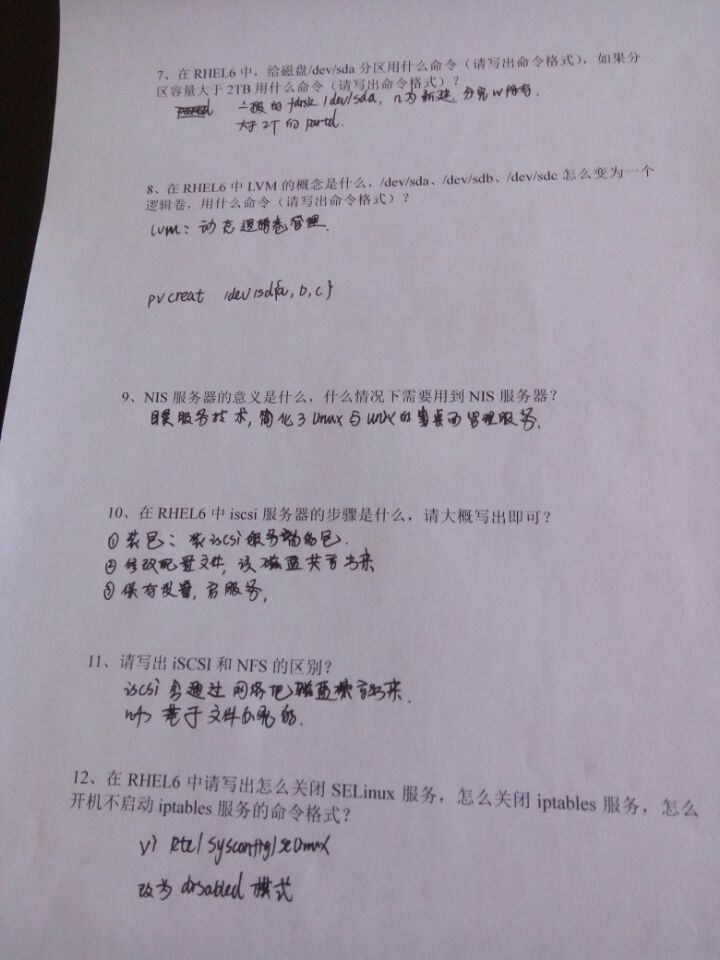 7、在 RHEL6 中，给磁盘/dev/sda 分区用什么命令（请写出命令格式），如果分
区容量大于 2TB 用什么命令（请写出命令格式）？
一般的 fdisk /dev/sda, n为新建, 分完w保存.
大于2T的parted.
8、在 RHEL6 中 LVM 的概念是什么，/dev/sda、/dev/sdb、/dev/sdc 怎么变为一个
逻辑卷，用什么命令（请写出命令格式）？
lvm: 动态逻辑卷管理.
pvcreat /dev/sd{a,b,c}
9、NIS 服务器的意义是什么，什么情况下需要用到 NIS 服务器？
目录服务技术, 简化了Linux与unix的桌面管理服务.
10、在 RHEL6 中 iscsi 服务器的步骤是什么，请大概写出即可？
①装包: 装iscsi服务端的包.
②修改配置文件, 让磁盘共享出来
③保存设置, 启服务,
11、请写出 iSCSI 和 NFS 的区别？
iscsi 是通过网络把磁盘共享出来.
nfs 基于文件系统的.
12、在 RHEL6 中请写出怎么关闭 SELinux 服务，怎么关闭 iptables 服务，怎么
开机不启动 iptables 服务的命令格式？
vi /etc/sysconfig/selinux
改为 disabled 模式